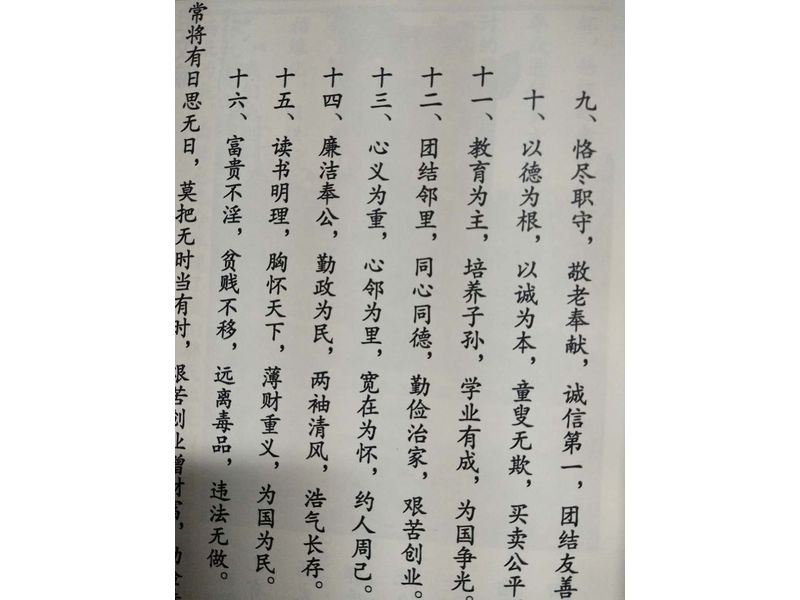 九、恪尽职守，敬老奉献，诚信第一，团结友善
十、以德为根，以诚为本，童叟无欺，买卖公平
十一、教育为主，培养子孙，学业有成，为国争光。
十二、团结邻里，同心同德，勤俭治家，艰苦创业。
十三、心义为重，心邻为里，宽在为怀，约人周己。
十四、廉洁奉公，勤政为民，两袖清风，浩气长存。
十五、读书明理，胸怀天下，薄财重义，为国为民。
十六、富贵不淫，贫贱不移，远离毒品，违法无做。
常将有日思无日，莫把无时当有时，艰苦创业增财富，